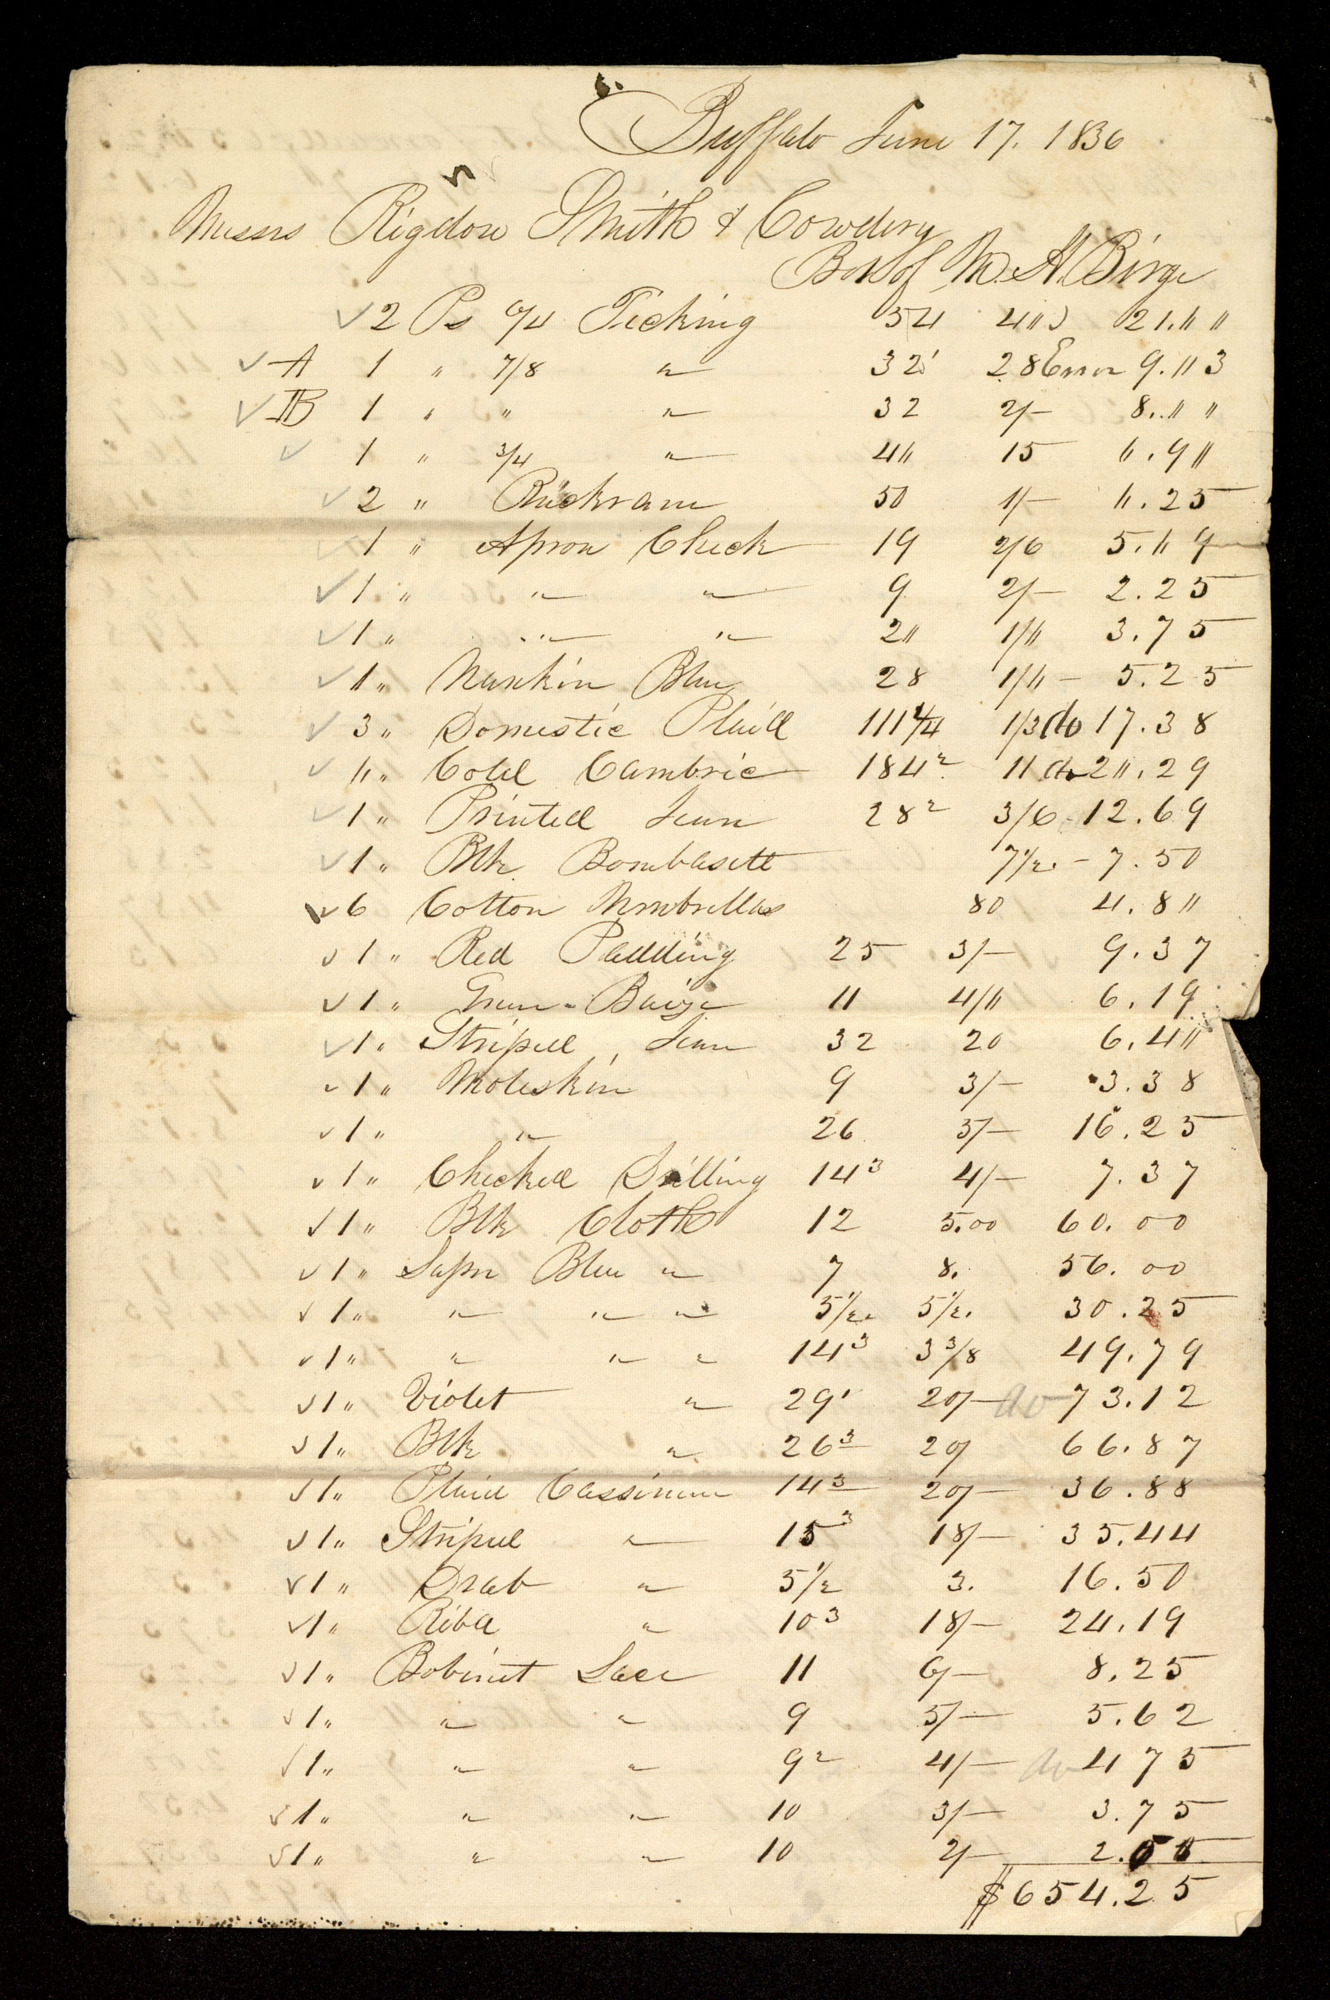 Buffalo June 17. 1836
Messrs Rigdon Smith & Cowdery
Bot of M. H. Birge
2 Ps 6/4 Ticking 54 40 21.00
A 1 " 7/8 " 32 28 Error 9.03
B 1 " " " 32 2/- 8.00
1 " 3/4 " 40 15 6.00
2 " Buckram 50 1/- 6.25
1 " Apron Check 19 2/6 5.09
1 " " " 9 2/- 2.25
1 " " " 20 1/6 3.75
1 " Nankin Blue 28 1/6 - 5.25
3 " Domestic Plaid 111 1/4 1/3 do 17.38
" Cold Cambric 184 2 11 do 20.29
1 " Printed Jean 28 2 3/6 12.69
1 " Blk Bombasett 7 1/2. - 7.50
6 Cotton Umbrellas 80 4.80
1 " Red Padding 25 3/- 9.37
1 " Green Baize 11 4/6 6.19
1 " Striped Jean 32 20 6.40
1 " Moleskin 9 3/- 3.38
1 " " 26 5/- 16.25
1 " Checked Drilling 14 3 4/- 7.37
1 " Blk Cloth 12 5.00 60.00
1 " Supr Blue " 7 8. 56.00
1 " " " " 5 1/2. 5 1/2. 30.25
1 " " " " 14 3 3 3/8 49.79
1 " Violet " 29 1 20/- 73.12
1 " Blk " 26 3 20/ 66.87
1 " Plaid Cassimere 14 3 20/- 36.88
1 " Striped " 15 3 18/- 35.44
1 " Drab " 5 1/2 3. 16.50
1 " Ribd " 10 3 18/- 24.19
1 " Bobinet Lace 11 6/- 8.25
1 " " " 9 5/- 5.62
1 " " " 9 2 4/- 4 75
1 " " " 10 3/- 3.75
1 " " " 10 2/-
$654.25